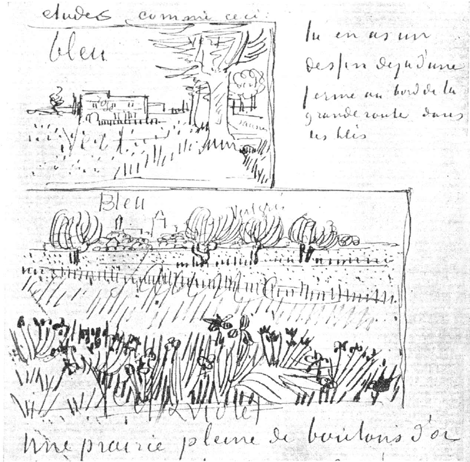 etudes comme ceci
bleu
tu en as un
dessin deja d'une
ferme au bord de la
grande route dans
les blés
Bleu
Violet
Une prairie pleine de boutons d'or